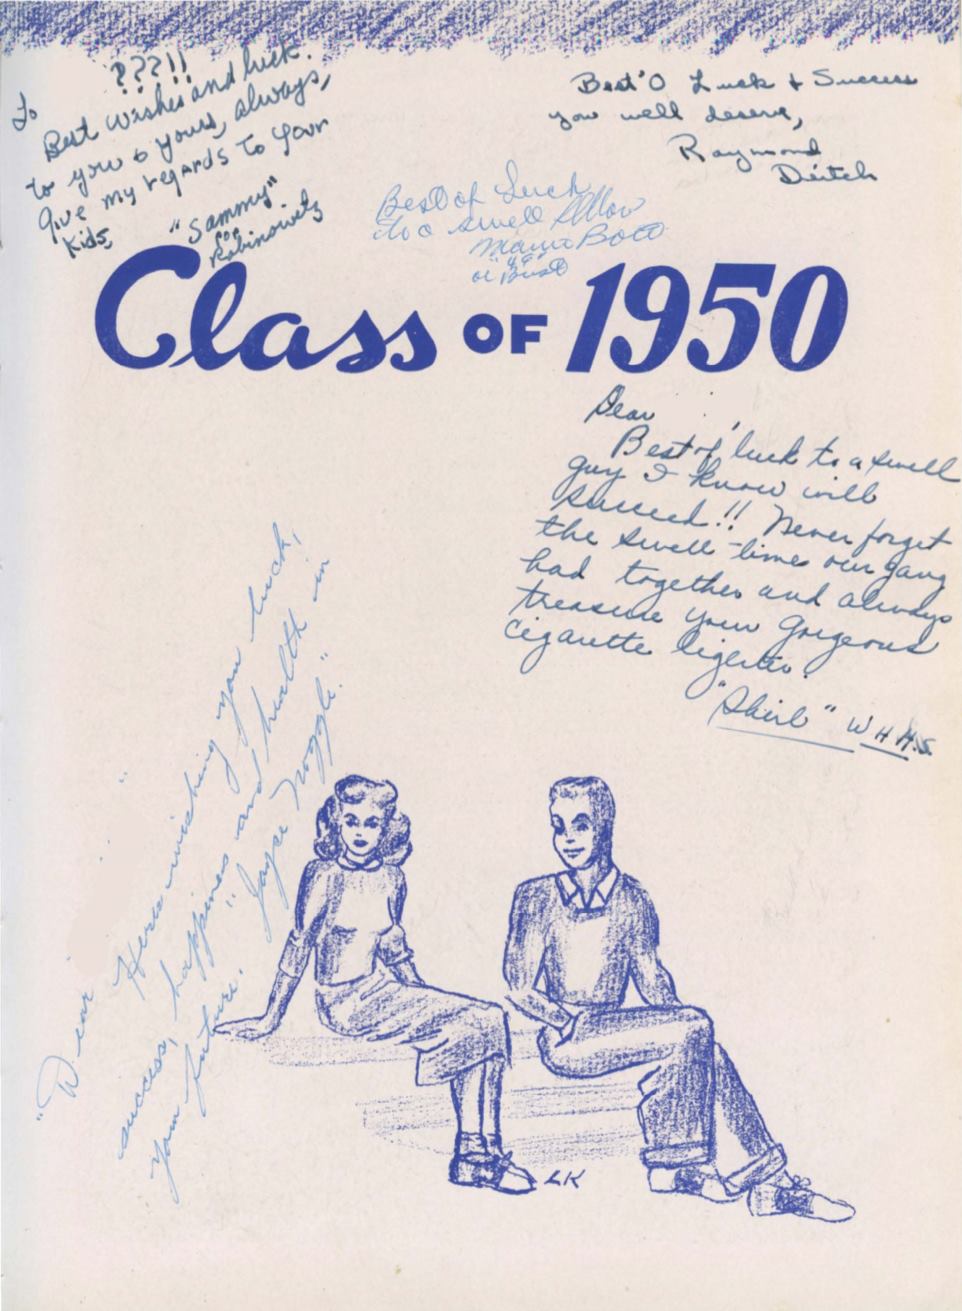 To ???!!
Best wishes and luck
to you & yours, always,
Give my regards to your
Kids,
"Sammy"
Rabinowitz
Best 'O Luck & Success
you well deserve,
Raymond
Deitch
Best of Luck
to a swell fellow
"49"
or Bust
Class OF 1950
Dear
Best of luck to a swell
guy I know will
succeed!! Never forget
the swell times our gang
had together and always
treasure your gorgeous
cigarette lighter.
"Shirl" W H H.S.
"Dear
Here's wishing you luck,
success, happiness and health in
your future."
"Joyce
LK